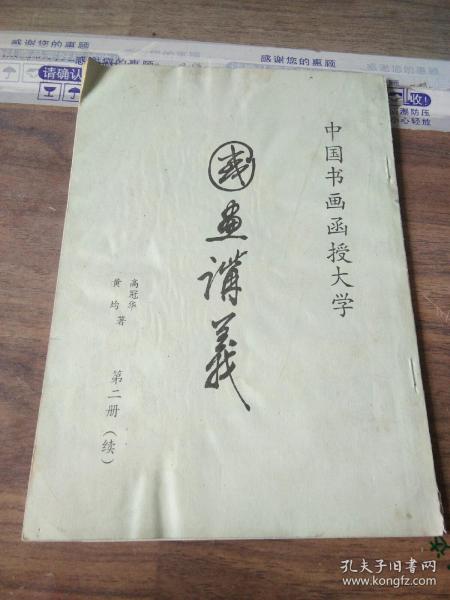 感谢您的惠顾
感谢您的惠顾
感谢您的惠顾
感谢您的惠顾
请确认
收!
防压
小心轻放
中国书画函授大学
國画講義
高冠华
黄均 著
第二册(续)
孔夫子旧书网
www.kongfz.com